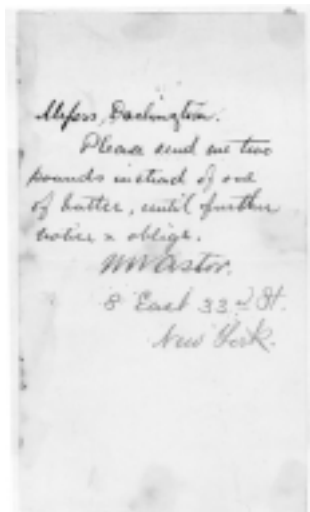 Messrs, Darlington.
Please send me two
pounds instead of one
of butter, until further
notice & oblige.
WWAstor.
8 East 33d St.
New York.